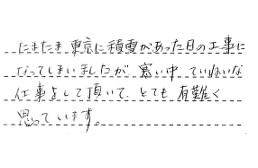 たまたま東京に積雪があった日の工事に
なってしまいましたが 寒い中 ていねいな
仕事をして頂いて、とても有難く
思っています。